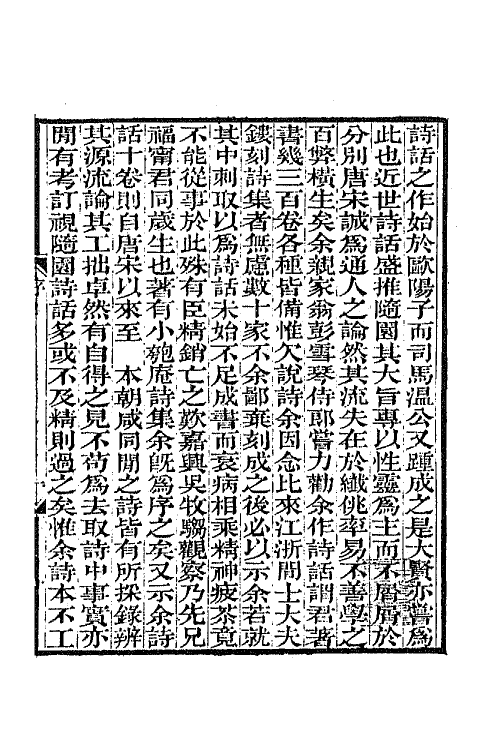 詩話之作始於歐陽子而司馬溫公又踵成之是大賢亦嘗爲
此也近世詩話盛推隨園其大旨專以性靈爲主而不屑屑於
分別唐宋誠爲通人之論然其流失在於纖佻率易不善學之
百弊橫生矣余親家翁彭雪琴侍郎嘗力勸余作詩話謂君著
書幾三百卷各種皆備惟欠說詩余因念比來江浙間士大夫
鏤刻詩集者無慮數十家不余鄙棄刻成之後必以示余若就
其中刺取以爲詩話未始不足成書而衰病相乘精神疲苶竟
不能從事於此殊有臣精銷亡之歎嘉興吳牧騶觀察乃先兄
福甯君同歲生也著有小匏庵詩集余旣爲序之矣又示余詩
話十卷則自唐宋以來至　本朝咸同間之詩皆有所採錄辨
其源流論其工拙卓然有自得之見不苟爲去取詩中事實亦
間有考訂視隨園詩話多或不及精則過之矣惟余詩本不工
序